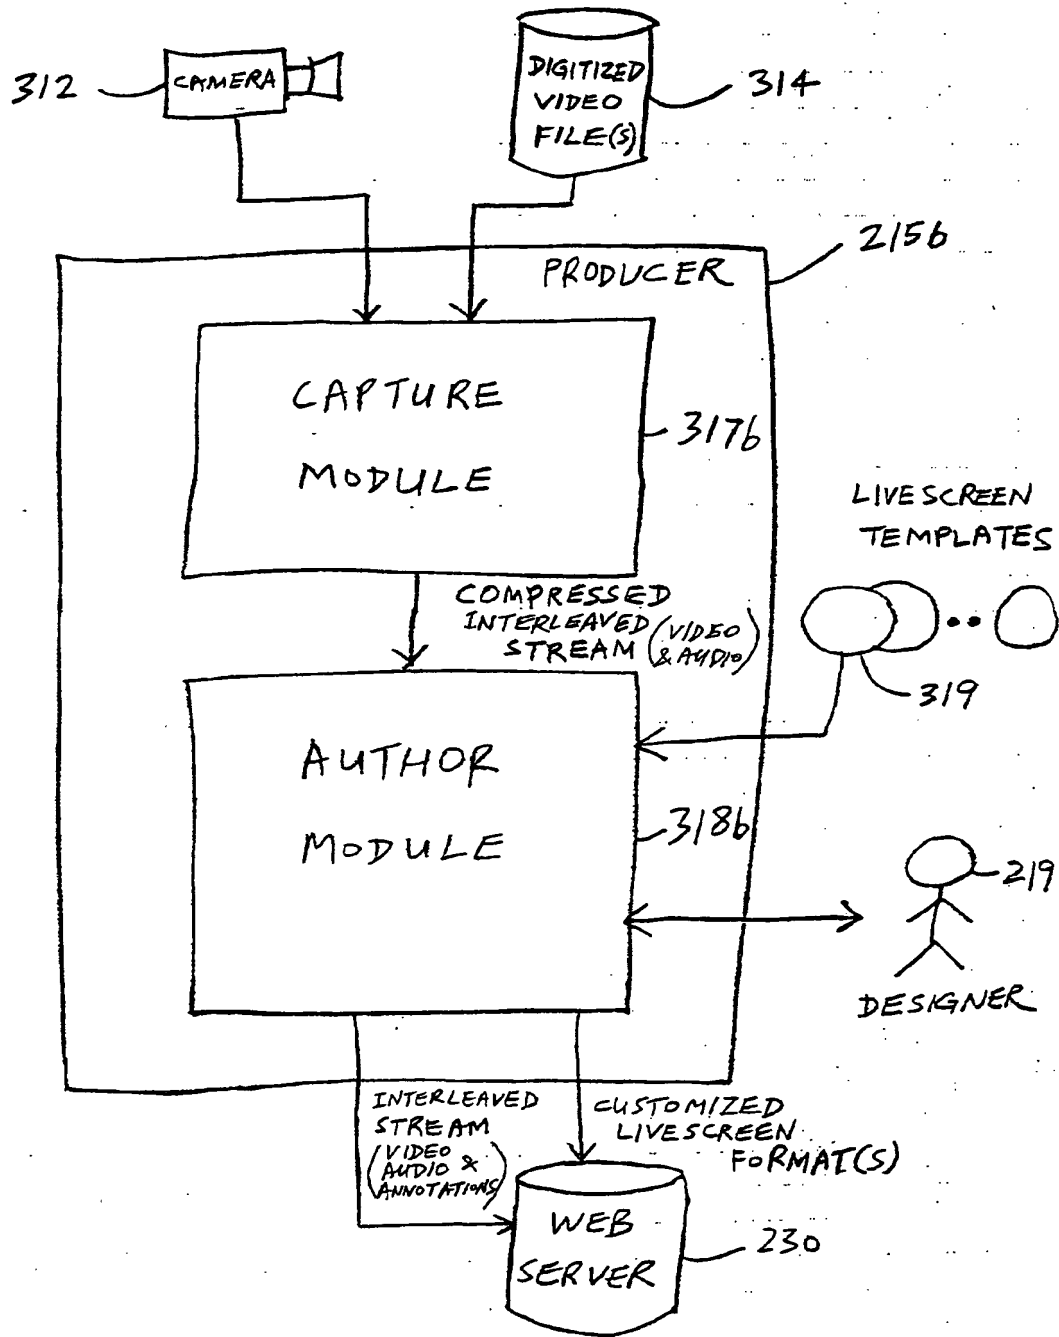 312
CAMERA
DIGITIZED
VIDEO
FILE(S)
314
215b
PRODUCER
CAPTURE
MODULE
317b
LIVESCREEN
TEMPLATES
COMPRESSED
INTERLEAVED
STREAM (VIDEO
& AUDIO)
319
AUTHOR
MODULE
318b
219
DESIGNER
INTERLEAVED
STREAM
(VIDEO
AUDIO &
ANNOTATIONS)
CUSTOMIZED
LIVESCREEN
FORMAT(S)
WEB
SERVER
230